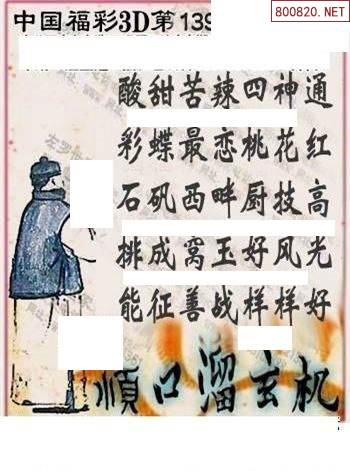 800820.NET
中国福彩3D第139
酸甜苦辣四神通
彩蝶最恋桃花红
石矶西畔厨技高
桃成窝玉好风光
能征善战样样好
順口溜玄机